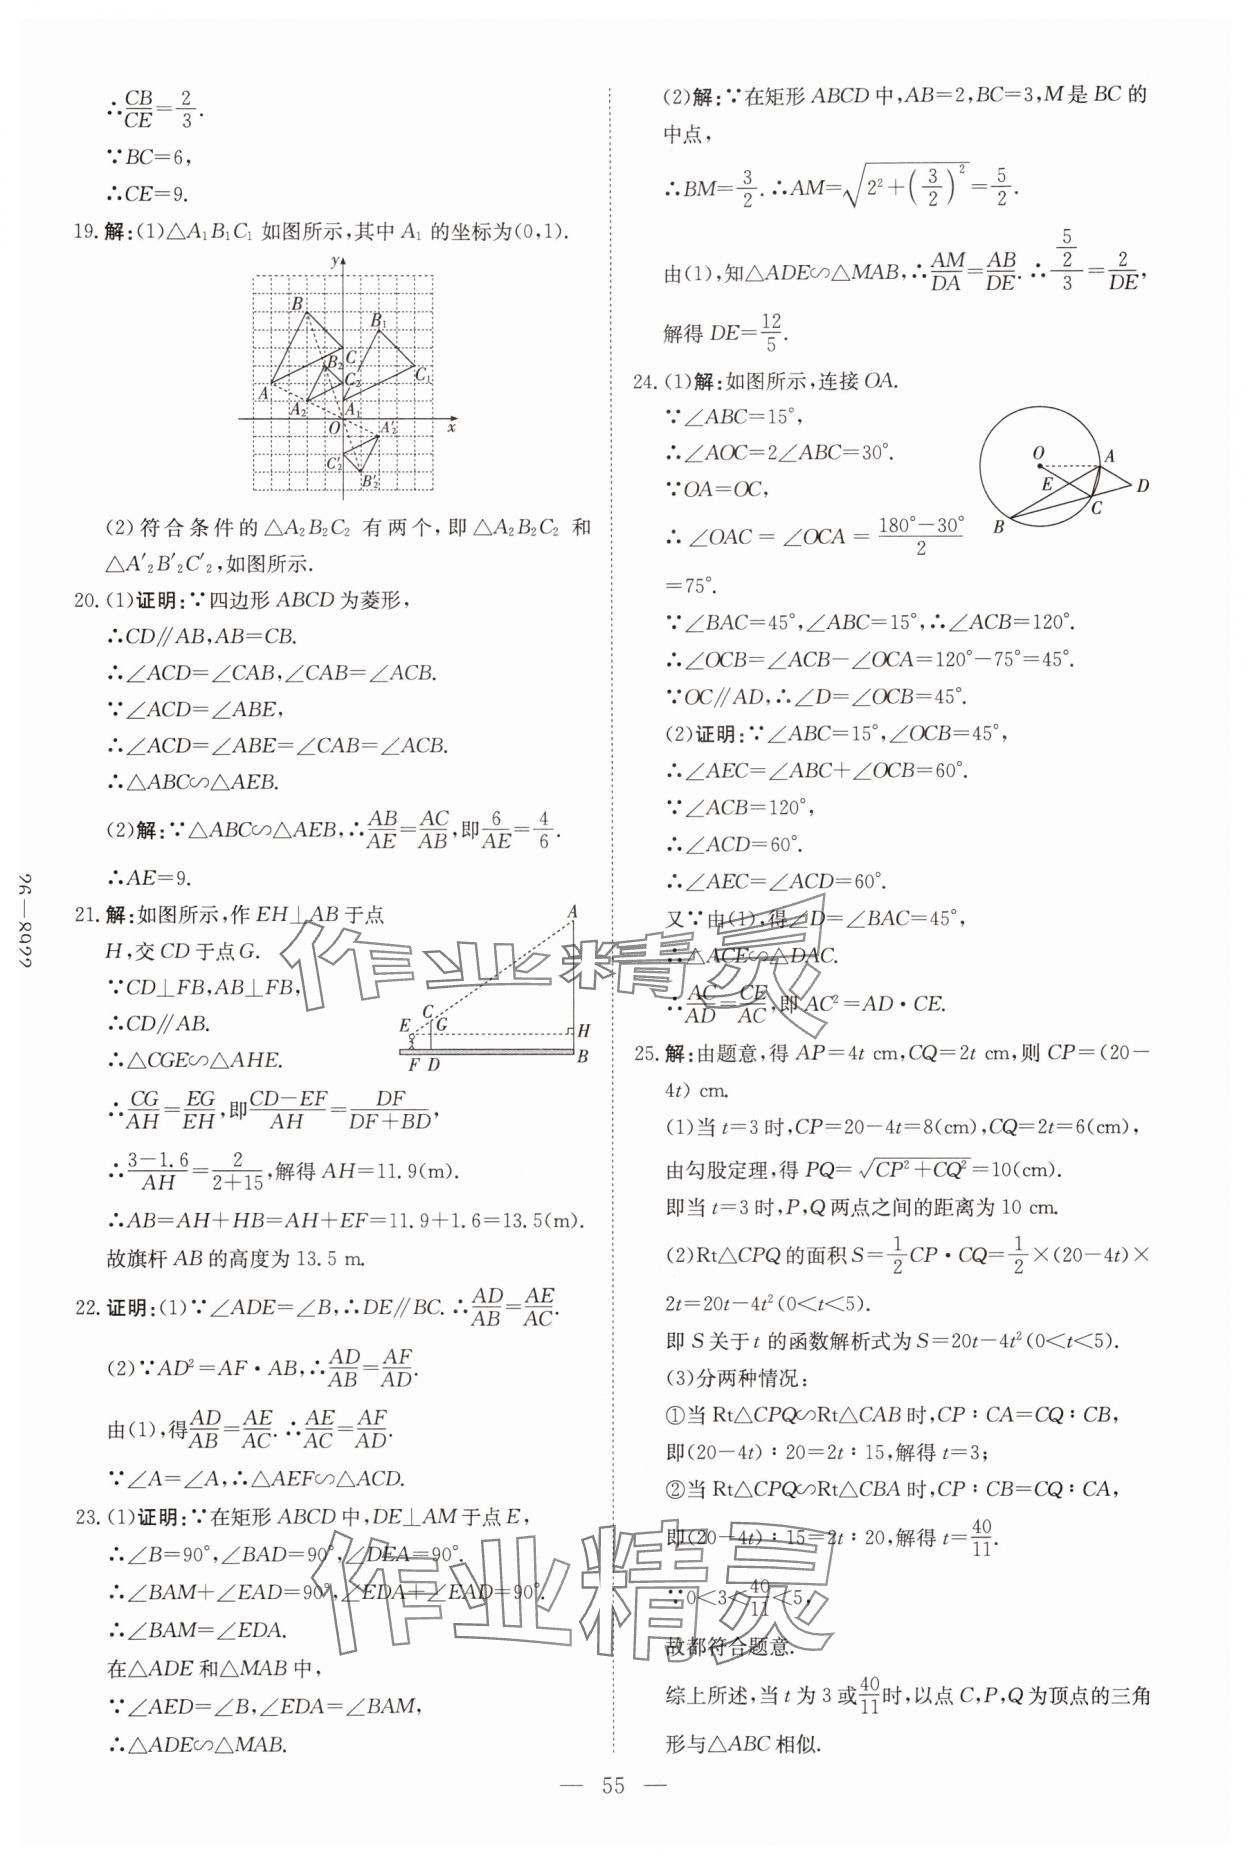 ∴CB/CE=2/3.
∵BC=6,
∴CE=9.
19. 解:(1)△A₁B₁C₁ 如图所示,其中 A₁ 的坐标为(0,1).
y
B
B₁
C
B₂
C₁
A
C₂
A₂
A₁
O
x
A′₂
C′₂
B′₂
(2)符合条件的△A₂B₂C₂ 有两个,即△A₂B₂C₂ 和
△A′₂B′₂C′₂,如图所示.
20. (1)证明:∵四边形 ABCD 为菱形,
∴CD∥AB,AB=CB.
∴∠ACD=∠CAB,∠CAB=∠ACB.
∵∠ACD=∠ABE,
∴∠ACD=∠ABE=∠CAB=∠ACB.
∴△ABC∽△AEB.
(2)解:∵△ABC∽△AEB,∴AB/AE=AC/AB,即6/AE=4/6.
∴AE=9.
21. 解:如图所示,作 EH⊥AB 于点
H,交 CD 于点G.
∵CD⊥FB,AB⊥FB,
∴CD∥AB.
∴△CGE∽△AHE.
A
C
E G
H
F D
B
∴CG/AH=EG/EH,即(CD−EF)/AH=DF/(DF+BD),
∴(3−1.6)/AH=2/(2+15),解得 AH=11.9(m).
∴AB=AH+HB=AH+EF=11.9+1.6=13.5(m).
故旗杆 AB 的高度为 13.5 m.
22. 证明:(1)∵∠ADE=∠B,∴DE∥BC.∴AD/AB=AE/AC.
(2)∵AD²=AF·AB,∴AD/AB=AF/AD.
由(1),得AD/AB=AE/AC.∴AE/AC=AF/AD.
∵∠A=∠A,∴△AEF∽△ACD.
23. (1)证明:∵在矩形 ABCD 中,DE⊥AM于点 E,
∴∠B=90°,∠BAD=90°,∠DEA=90°.
∴∠BAM+∠EAD=90°,∠EDA+∠EAD=90°.
∴∠BAM=∠EDA.
在△ADE 和△MAB 中,
∵∠AED=∠B,∠EDA=∠BAM,
∴△ADE∽△MAB.
(2)解:∵在矩形 ABCD 中,AB=2,BC=3,M 是 BC 的
中点,
∴BM=3/2.∴AM=√(2²+(3/2)²)=5/2.
由(1),知△ADE∽△MAB,∴AM/DA=AB/DE.∴(5/2)/3=2/DE,
解得 DE=12/5.
24. (1)解:如图所示,连接 OA.
∵∠ABC=15°,
∴∠AOC=2∠ABC=30°.
∵OA=OC,
∴∠OAC=∠OCA=(180°−30°)/2
=75°.
O
A
E
D
C
B
∵∠BAC=45°,∠ABC=15°,∴∠ACB=120°.
∴∠OCB=∠ACB−∠OCA=120°−75°=45°.
∵OC∥AD,∴∠D=∠OCB=45°.
(2)证明:∵∠ABC=15°,∠OCB=45°,
∴∠AEC=∠ABC+∠OCB=60°.
∵∠ACB=120°,
∴∠ACD=60°.
∴∠AEC=∠ACD=60°.
又∵由(1),得∠D=∠BAC=45°,
∴△ACE∽△DAC.
∴AC/AD=CE/AC,即 AC²=AD·CE.
25. 解:由题意,得 AP=4t cm,CQ=2t cm,则 CP=(20−
4t) cm.
(1)当 t=3 时,CP=20−4t=8(cm),CQ=2t=6(cm),
由勾股定理,得 PQ=√(CP²+CQ²)=10(cm).
即当 t=3 时,P,Q 两点之间的距离为 10 cm.
(2)Rt△CPQ 的面积 S=1/2CP·CQ=1/2×(20−4t)×
2t=20t−4t²(0<t<5).
即 S 关于 t 的函数解析式为 S=20t−4t²(0<t<5).
(3)分两种情况:
①当 Rt△CPQ∽Rt△CAB 时,CP∶CA=CQ∶CB,
即(20−4t)∶20=2t∶15,解得 t=3;
②当 Rt△CPQ∽Rt△CBA 时,CP∶CB=CQ∶CA,
即(20−4t)∶15=2t∶20,解得 t=40/11.
∵0<3<40/11<5,
故都符合题意.
综上所述,当 t 为 3 或40/11时,以点 C,P,Q 为顶点的三角
形与△ABC 相似.
— 55 —
26—8922
作业精灵
作业精灵